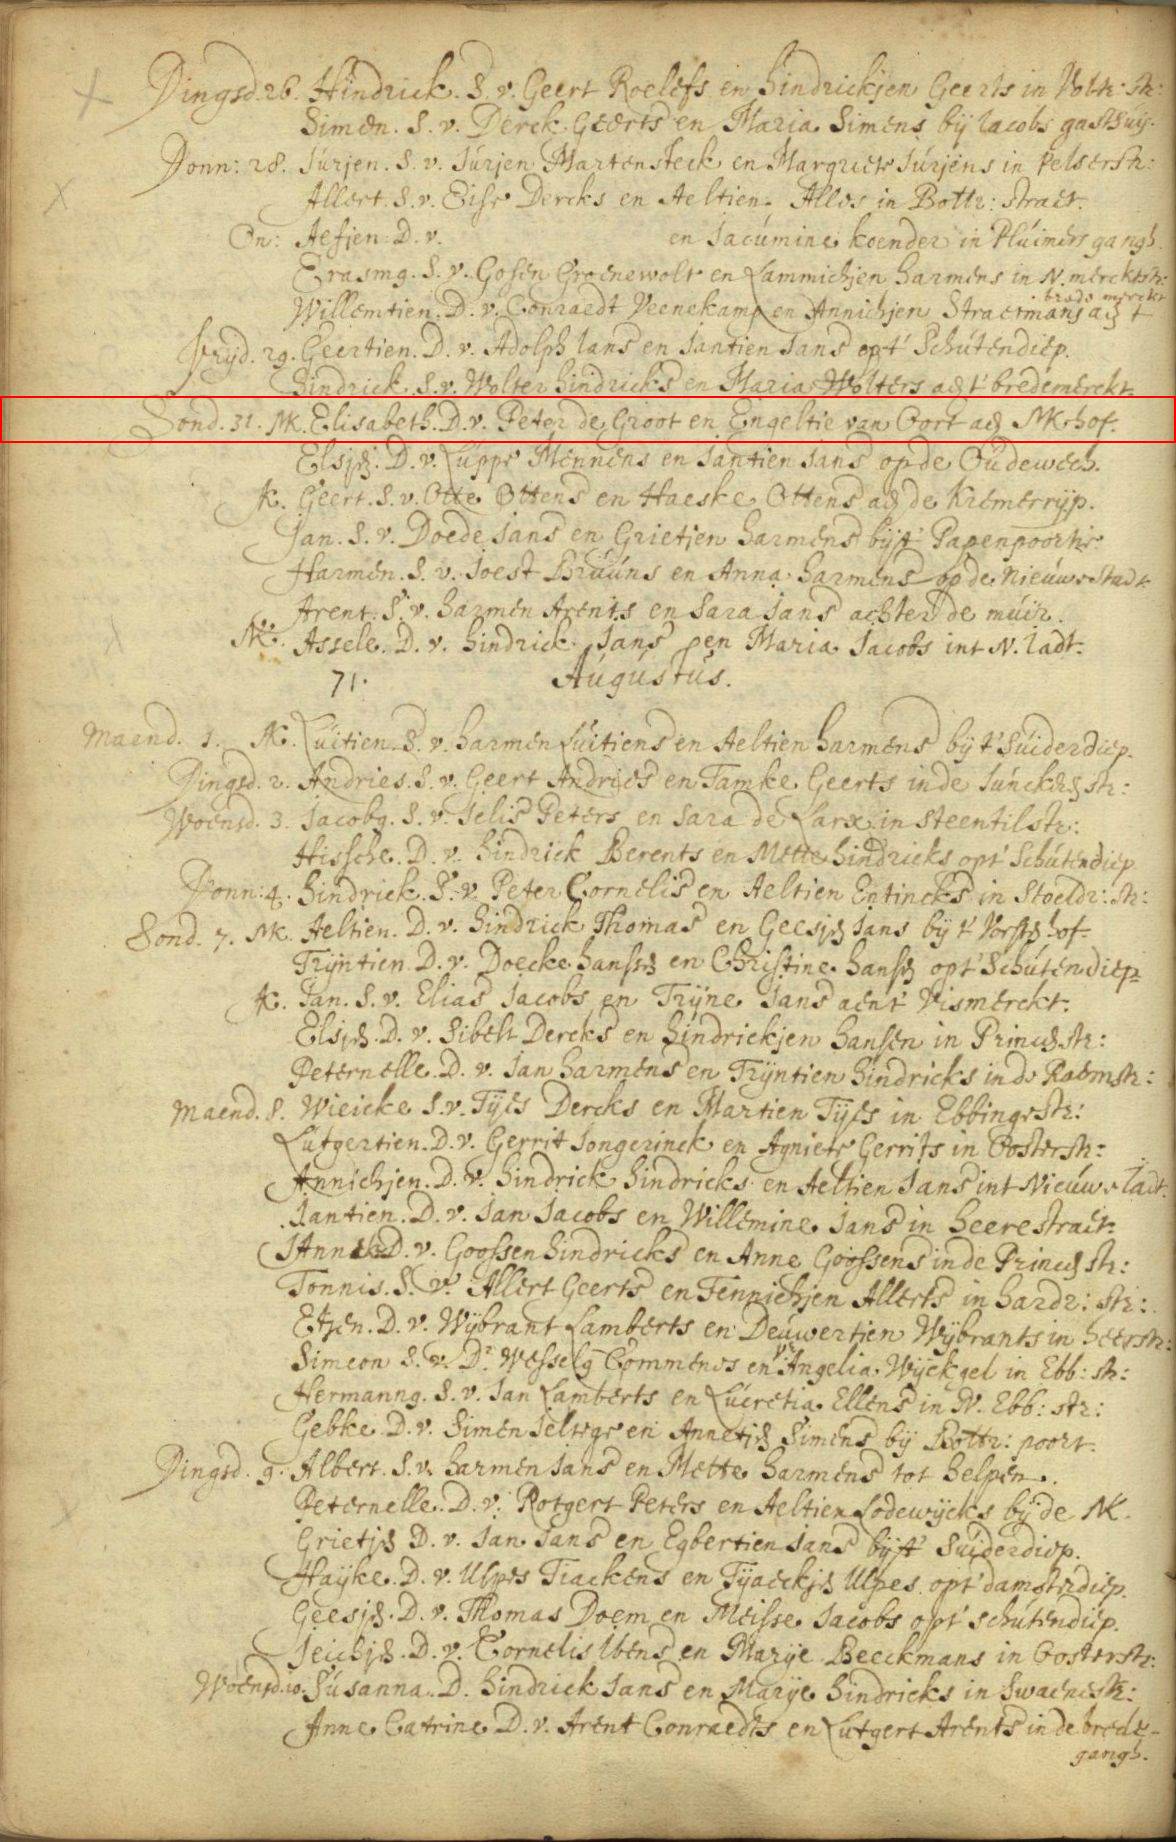 Dingsd. 26. Hindrick. S. v. Geert Roelefs en hindrickjen Geerts in Volk: str:
Simen. S. v. Derck Geerts en Maria Simens bij Iacobs gasthuy.
Donn: 28. Iúrjen. S. v. Iúrjen Martensteck en Margriete Iúrjens in Pelserstr:
Allert. S. v. Eise Dercks en Aeltien Alles in Bottr: straet.
On: Aefjen. D. v. en Iacúmine koender in Plúimers gangh.
Erasmg. S. v. Gosen Groenewolt en Lammichjen harmens in N. merckstr:
brede merckt
Willemtien. D. v. Conraedt Veenekamp en Annichjen Straetmans aen t
Vrijd. 29. Geertien. D. v. Adolph Ians en Iantien Ians opt' Schútendiep.
Hindrick. S. v. Wolter hindricks en Maria Wolters aen t' bredemerckt.
Sond. 31. NK. Elisabeth. D. v. Peter de Groot en Engeltie van Oort aen NK hof.
Elsjen. D. v. Luppe Mennens en Iantien Ians op de Oúdewech.
K. Geert. S. v. Otte Ottens en Haeske Ottens aen de Kremerrijp.
Jan. S. v. Doede Ians en Grietjen harmens bijt' Papenpoortie
Harmen. S. v. Joest Brúúns en Anna harmens op de Nieuwestadt
Arent. S. v. harmen Arents en Sara Ians achter de múir.
NK. Assele. D. v. hindrick Ians en Maria Iacobs int N. ladt.
71. Aúgústús.
Maend. 1. AK. Lúitien. S. v. harmen Lúitiens en Aeltien harmens bij t' Súiderdiep.
Dingsd. 2. Andries. S. v. Geert Andries en Tamke Geerts in de Iúnckerstr:
Woensd. 3. Iacobg. S. v. Ielis Peters en Sara de Larx in Steentilstr:
Hissche. D. v. hindrick Berents en Mette hindricks opt' Schútendiep
Donn: 4. hindrick. S. v. Peter Cornelis en Aeltien Entincks in Stoeldr: str:
Sond. 7. NK. Aeltien. D. v. hindrick Thomas en Geesjen Ians bij t' Vorsten hof.
Trijntien. D. v. Doecke hanssen en Christine hansen opt' Schútendiep
K. Jan. S. v. Elias Iacobs en Trijne Ians aent' Vismerckt.
Elsjen. D. v. Sibelt Dercks en hindrickjen Hansen in Princenstr:
Peternelle. D. v. Ian harmens en Trijntien hindricks in de Raemstr:
Maend. 8. Wieicke S. v. Tijes Dercks en Martien Tijes in Ebbingestr:
Lútgertien. D. v. Gerrit Iongerinck en Agniete Gerrits in Oosterstr:
Annichjen. D. v. hindrick hindricks en Aeltien Ians int Nieúwe ladt
Iantien. D. v. Ian Iacobs en Willemine Ians in heerestraet.
D. v. Goossen hindricks en Anne Goossens in de Princenstr:
Tonnis. S. v. Allert Geerts en Tennichjen Allerts in hardr: str:
Etjen. D. v. Wijbrant Lamberts en Deúwertien Wijbrants in heerstr:
Simeon S. v. Dr Wesselg Commenes en Angelia Wijckgel in Ebb: str:
Hermanng. S. v. Ian Lamberts en Lúcretia Ellens in N. Ebb: str:
Gebke. D. v. Simen Ieltege en Annetjen Simens bij Bottr: poort.
Dingsd. 9. Albert. S. v. harmen Ians en Mette harmens tot helpen.
Peternelle. D. v. Rotgert Peters en Aeltien Lodewijcks bij de AK.
Grietjen D. v. Ian Ians en Egbertien Ians bijt' Súiderdiep.
Haijke. D. v. Ulpes Tiackens en Tijaeckjen Ulpes opt' damsterdiep.
Geesjen. D. v. Thomas Doem en Meisse Iacobs opt' schútendiep.
Ieichjen. D. v. Cornelis Ibens en Marije Beeckmans in Oosterstr:
Woensd. 10. Súsanna. D. hindrick Ians en Marije hindricks in Swaenestr:
Anne Catrine D. v. Arent Conraedts en Lútgert Arents in de brede-
gangh.